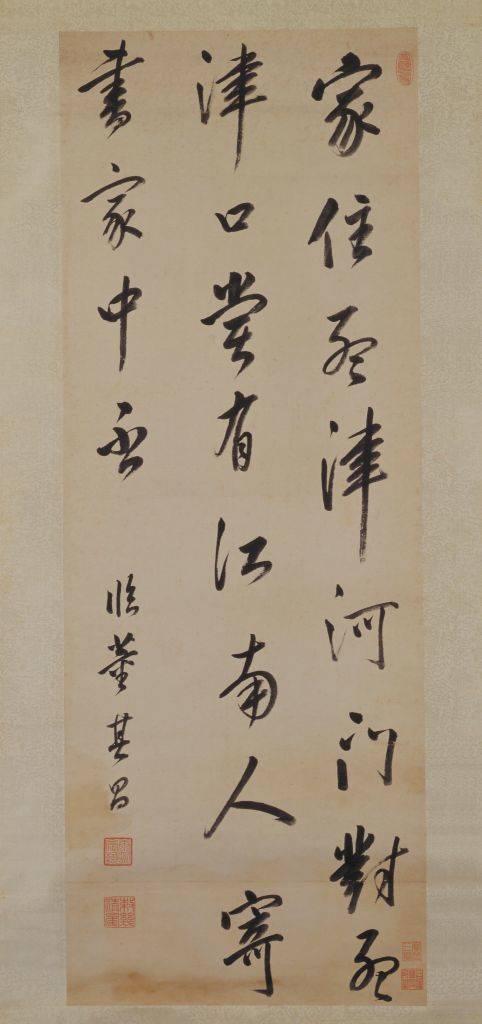 家住孟津河門對孟
津口常有江南人寄
書家中否
臨董其昌